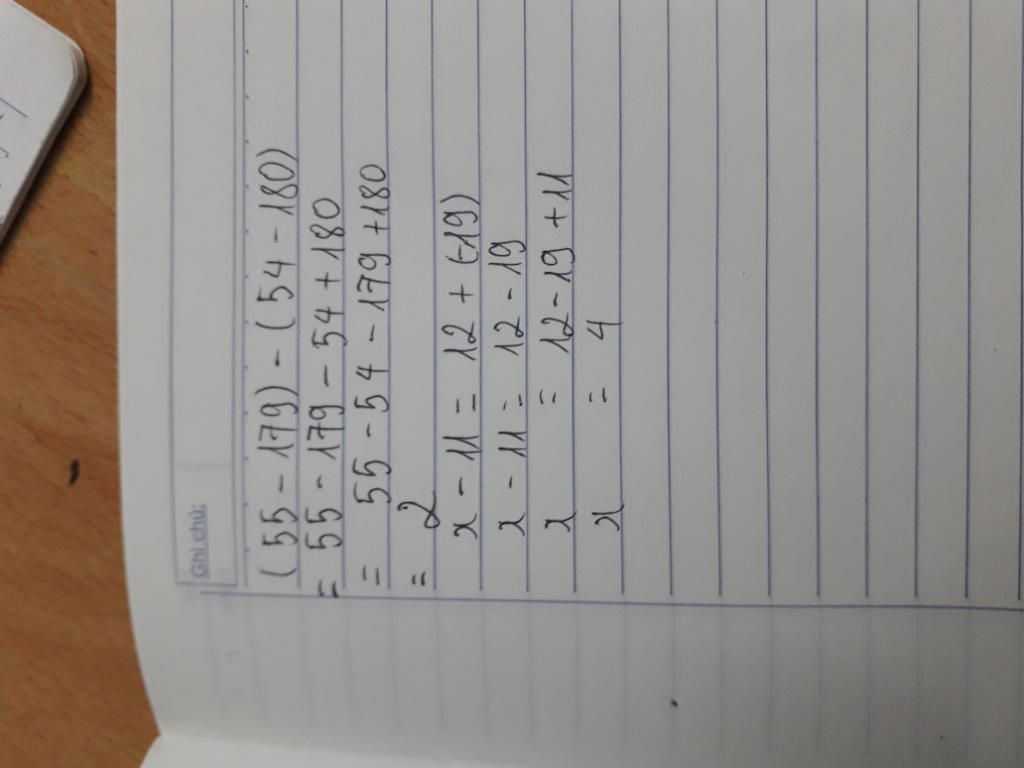 Ghi chú:
( 55 - 179) - ( 54 - 180)
= 55 - 179 - 54 + 180
= 55 - 54 - 179 + 180
= 2
x - 11 = 12 + (-19)
x - 11 = 12 - 19
x = 12 - 19 + 11
x = 4